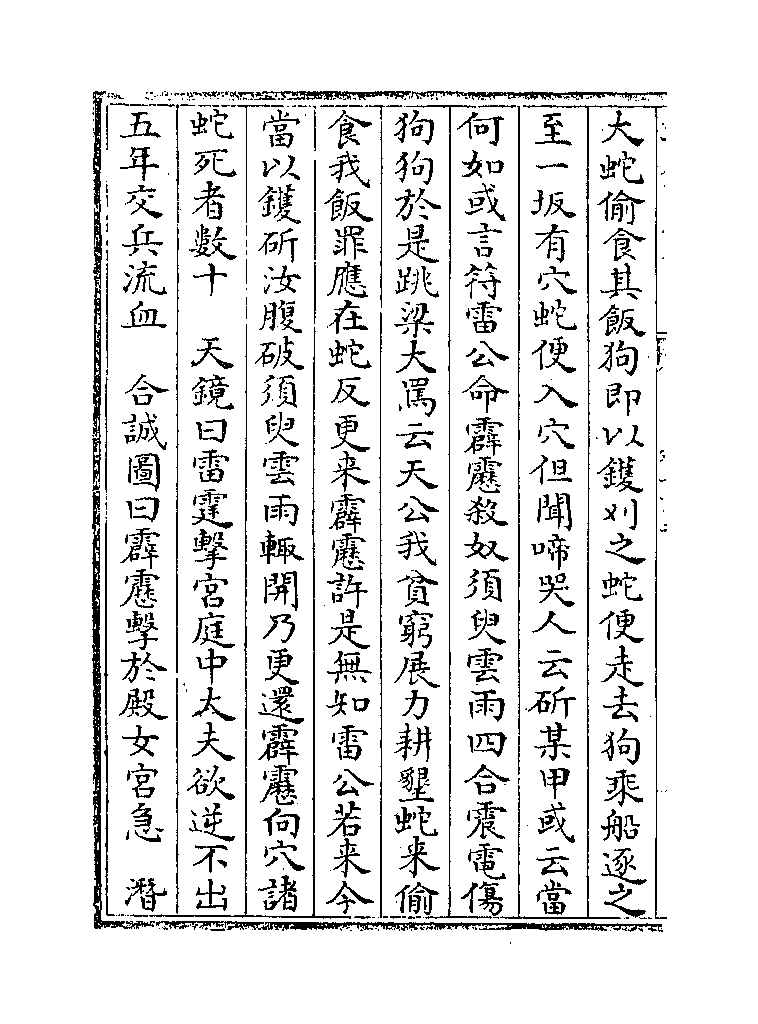 大蛇偷食其飯狗即以钁刈之蛇便走去狗乗船逐之
至一坂有穴蛇便入穴但聞啼哭人云斫某甲或云當
何如或言符雷公命霹靂殺奴須臾雲雨四合震電傷
狗狗於是跳梁大罵云天公我貧窮展力耕墾蛇来偷
食我飯罪應在蛇反更来霹靂許是無知雷公若来今
當以钁斫汝腹破須臾雲雨輙開乃更還霹靂向穴諸
蛇死者數十　天鏡曰雷霆擊宮庭中太夫欲逆不出
五年交兵流血　合誠圖曰霹靂擊於殿女宮急　潛